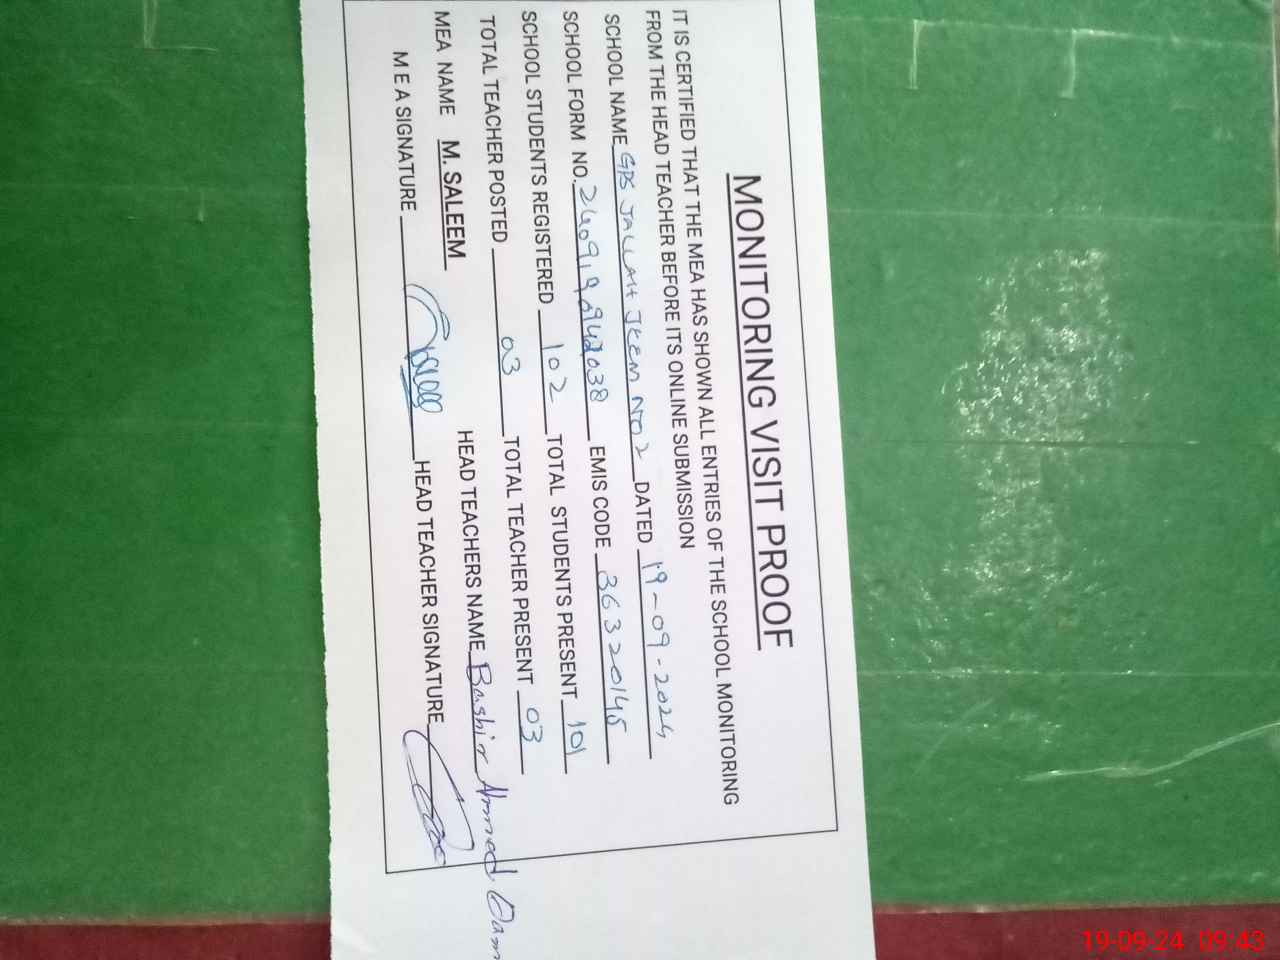 MONITORING VISIT PROOF
IT IS CERTIFIED THAT THE MEA HAS SHOWN ALL ENTRIES OF THE SCHOOL MONITORING
FROM THE HEAD TEACHER BEFORE ITS ONLINE SUBMISSION
SCHOOL NAME GPS JALLAH JEEM NO 2 DATED 19-09-2024
SCHOOL FORM NO. EMIS CODE 36320145
SCHOOL STUDENTS REGISTERED 102 TOTAL STUDENTS PRESENT 101
TOTAL TEACHER POSTED 03 TOTAL TEACHER PRESENT 03
MEA NAME M. SALEEM HEAD TEACHERS NAME Bashir Ahmed
M E A SIGNATURE HEAD TEACHER SIGNATURE
19-09-24 09:43